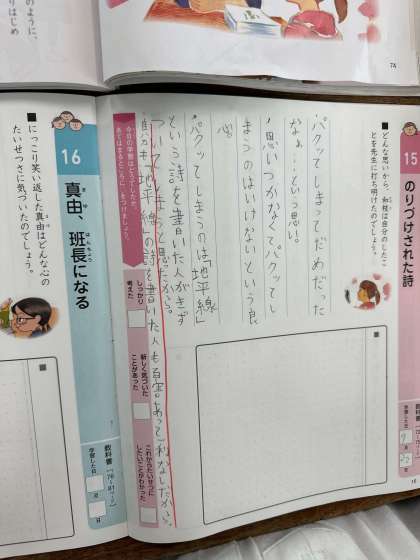 のように、
りはじめ
74
15
のりづけされた詩
教科書
学習した日
月
日
■どんな思いから、和枝は自分のしたこ
とを先生に打ち明けたのでしょう。
・パクッてしまってだめだった
なぁ…という思い。
・思いつかなくてパクッてし
まうのはいけないという良
心。
・パクッてしまうのは「地平線」
という詩を書いた人がきず
ついてしまうと思ったから。
「地平線」の詩を書いた人も
今日の学習はどうでしたか。
あてはまるところに、色をつけましょう。
しっかり
考えた
新しく気づいた
ことがあった
これからたいせつに
したいことがわかった
16
真由、班長になる
ま ゆ
はんちょう
教科書
学習した日
月
日
■にっこり笑い返した真由はどんな心の
たいせつさに気づいたのでしょう。